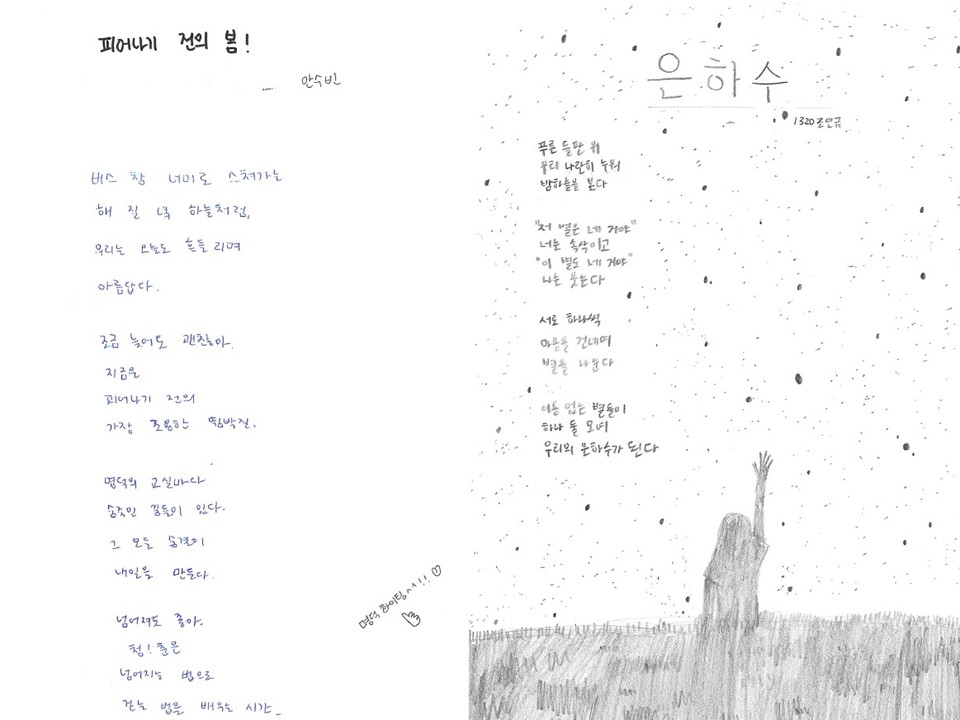 피어나기 전의 봄!
... 안수빈
버스 창 너머로 스쳐가는
해 질 녘 하늘처럼,
우리는 오늘도 흔들리며
아름답다.
조금 늦어도 괜찮아.
지금은
피어나기 전의
가장 조용한 뜀박질.
명덕의 교실마다
숨죽인 꿈들이 있다.
그 모든 숨결이
내일을 만든다.
넘어져도 좋아.
청!춘은
넘어지는 법으로
걷는 법을 배우는 시간_
명덕 화이팅^^!! ♡
은하수
1320 조연규
푸른 들판 위
우리 나란히 누워
밤하늘을 본다
"저 별은 네 거야"
너는 속삭이고
"이 별도 네 거야"
나는 웃는다
서로 하나씩
마음을 건네며
별을 나눈다
이름 없는 별들이
하나 둘 모여
우리의 은하수가 된다